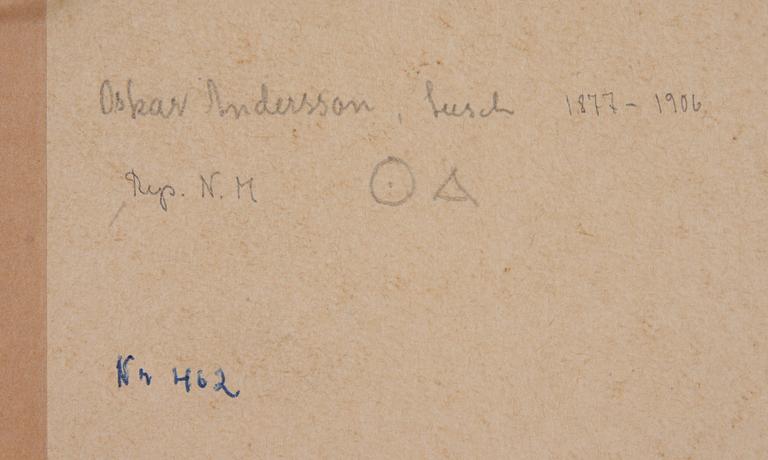 Oskar Andersson, 1877 - 1906
Rep. N. M
Nr 462